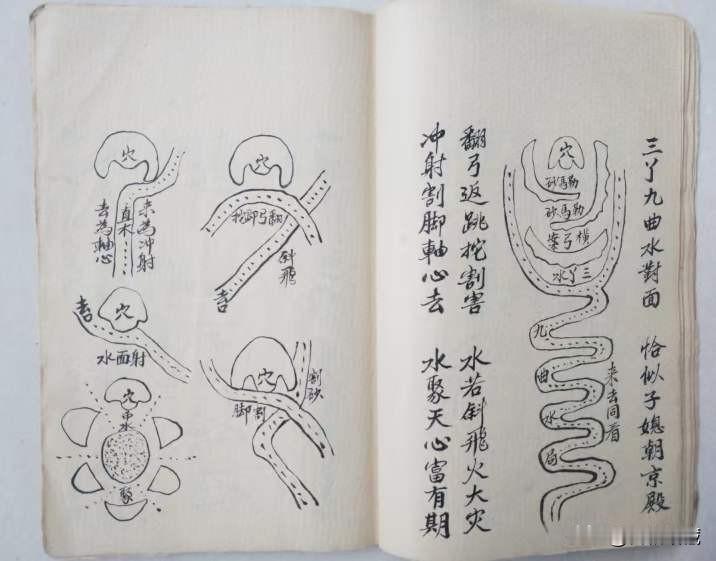 三丫九曲水對面 恰似子媳朝京殿
穴
勒馬砂
勒馬砂
橫弓案
三丫水
九曲水局
來去同看
翻弓返跳挖割害 水若斜飛火大灾
冲射割脚軸心去 水聚天心富有期
穴
翻弓挖脚
斜飛
穴
割砂
割脚
穴
來為冲射
直木
去為軸心
穴
射面水
穴
聚